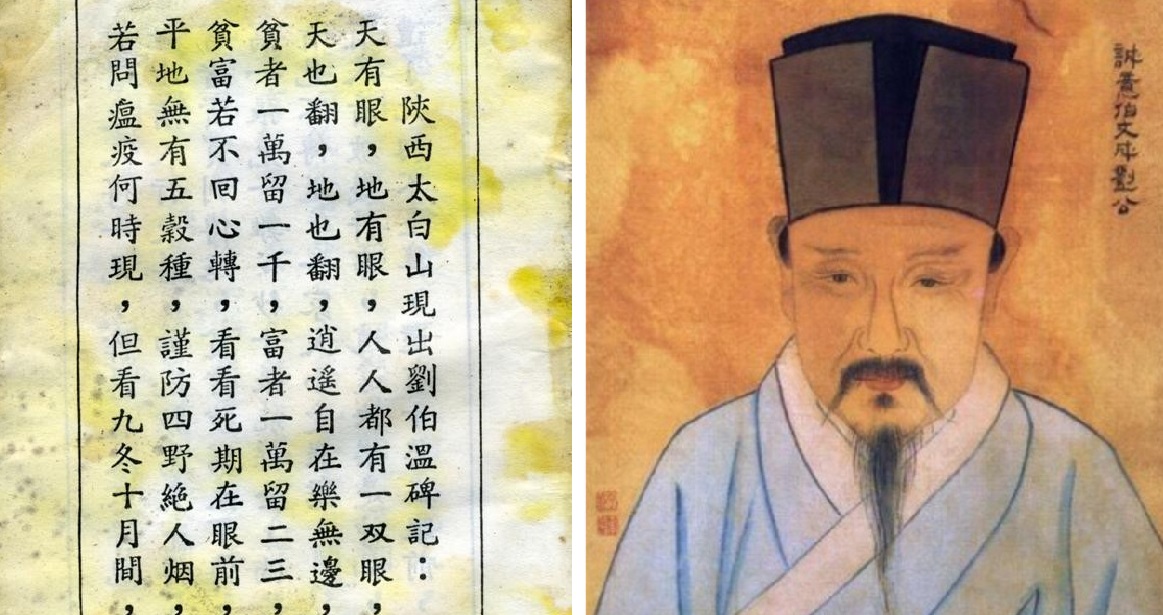 陝西太白山現出劉伯溫碑記：
天有眼，地有眼，人人都有一双眼，
天也翻，地也翻，逍遥自在樂無邊，
貧者一萬留一千，富者一萬留二三，
貧富若不回心轉，看看死期在眼前，
平地無有五穀種，謹防四野絕人烟，
若問瘟疫何時現，但看九冬十月間，
誠意伯文成劉公